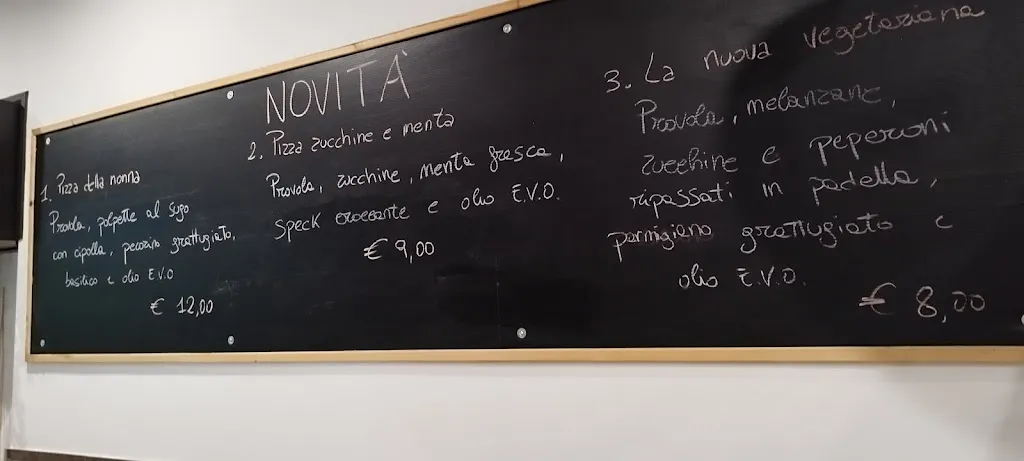 NOVITÀ
1. Pizza della nonna
Provola, polpette al sugo
con cipolla, pecorino grattugiato,
basilico e olio E.V.O
€ 12,00
2. Pizza zucchine e menta
Provola, zucchine, menta fresca,
speck croccante e olio E.V.O.
€ 9,00
3. La nuova vegetariana
Provola, melanzane,
zucchine e peperoni
ripassati in padella,
parmigiano grattugiato e
olio E.V.O.
€ 8,00